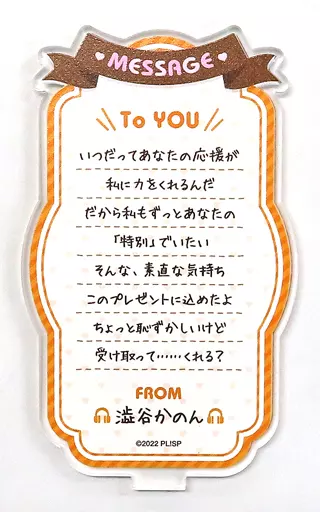 MESSAGE
To YOU
いつだってあなたの応援が
私に力をくれるんだ
だから私もずっとあなたの
「特別」でいたい
そんな、素直な気持ち
このプレゼントに込めたよ
ちょっと恥ずかしいけど
受け取って……くれる？
FROM
澁谷かのん
©2022 PL!SP